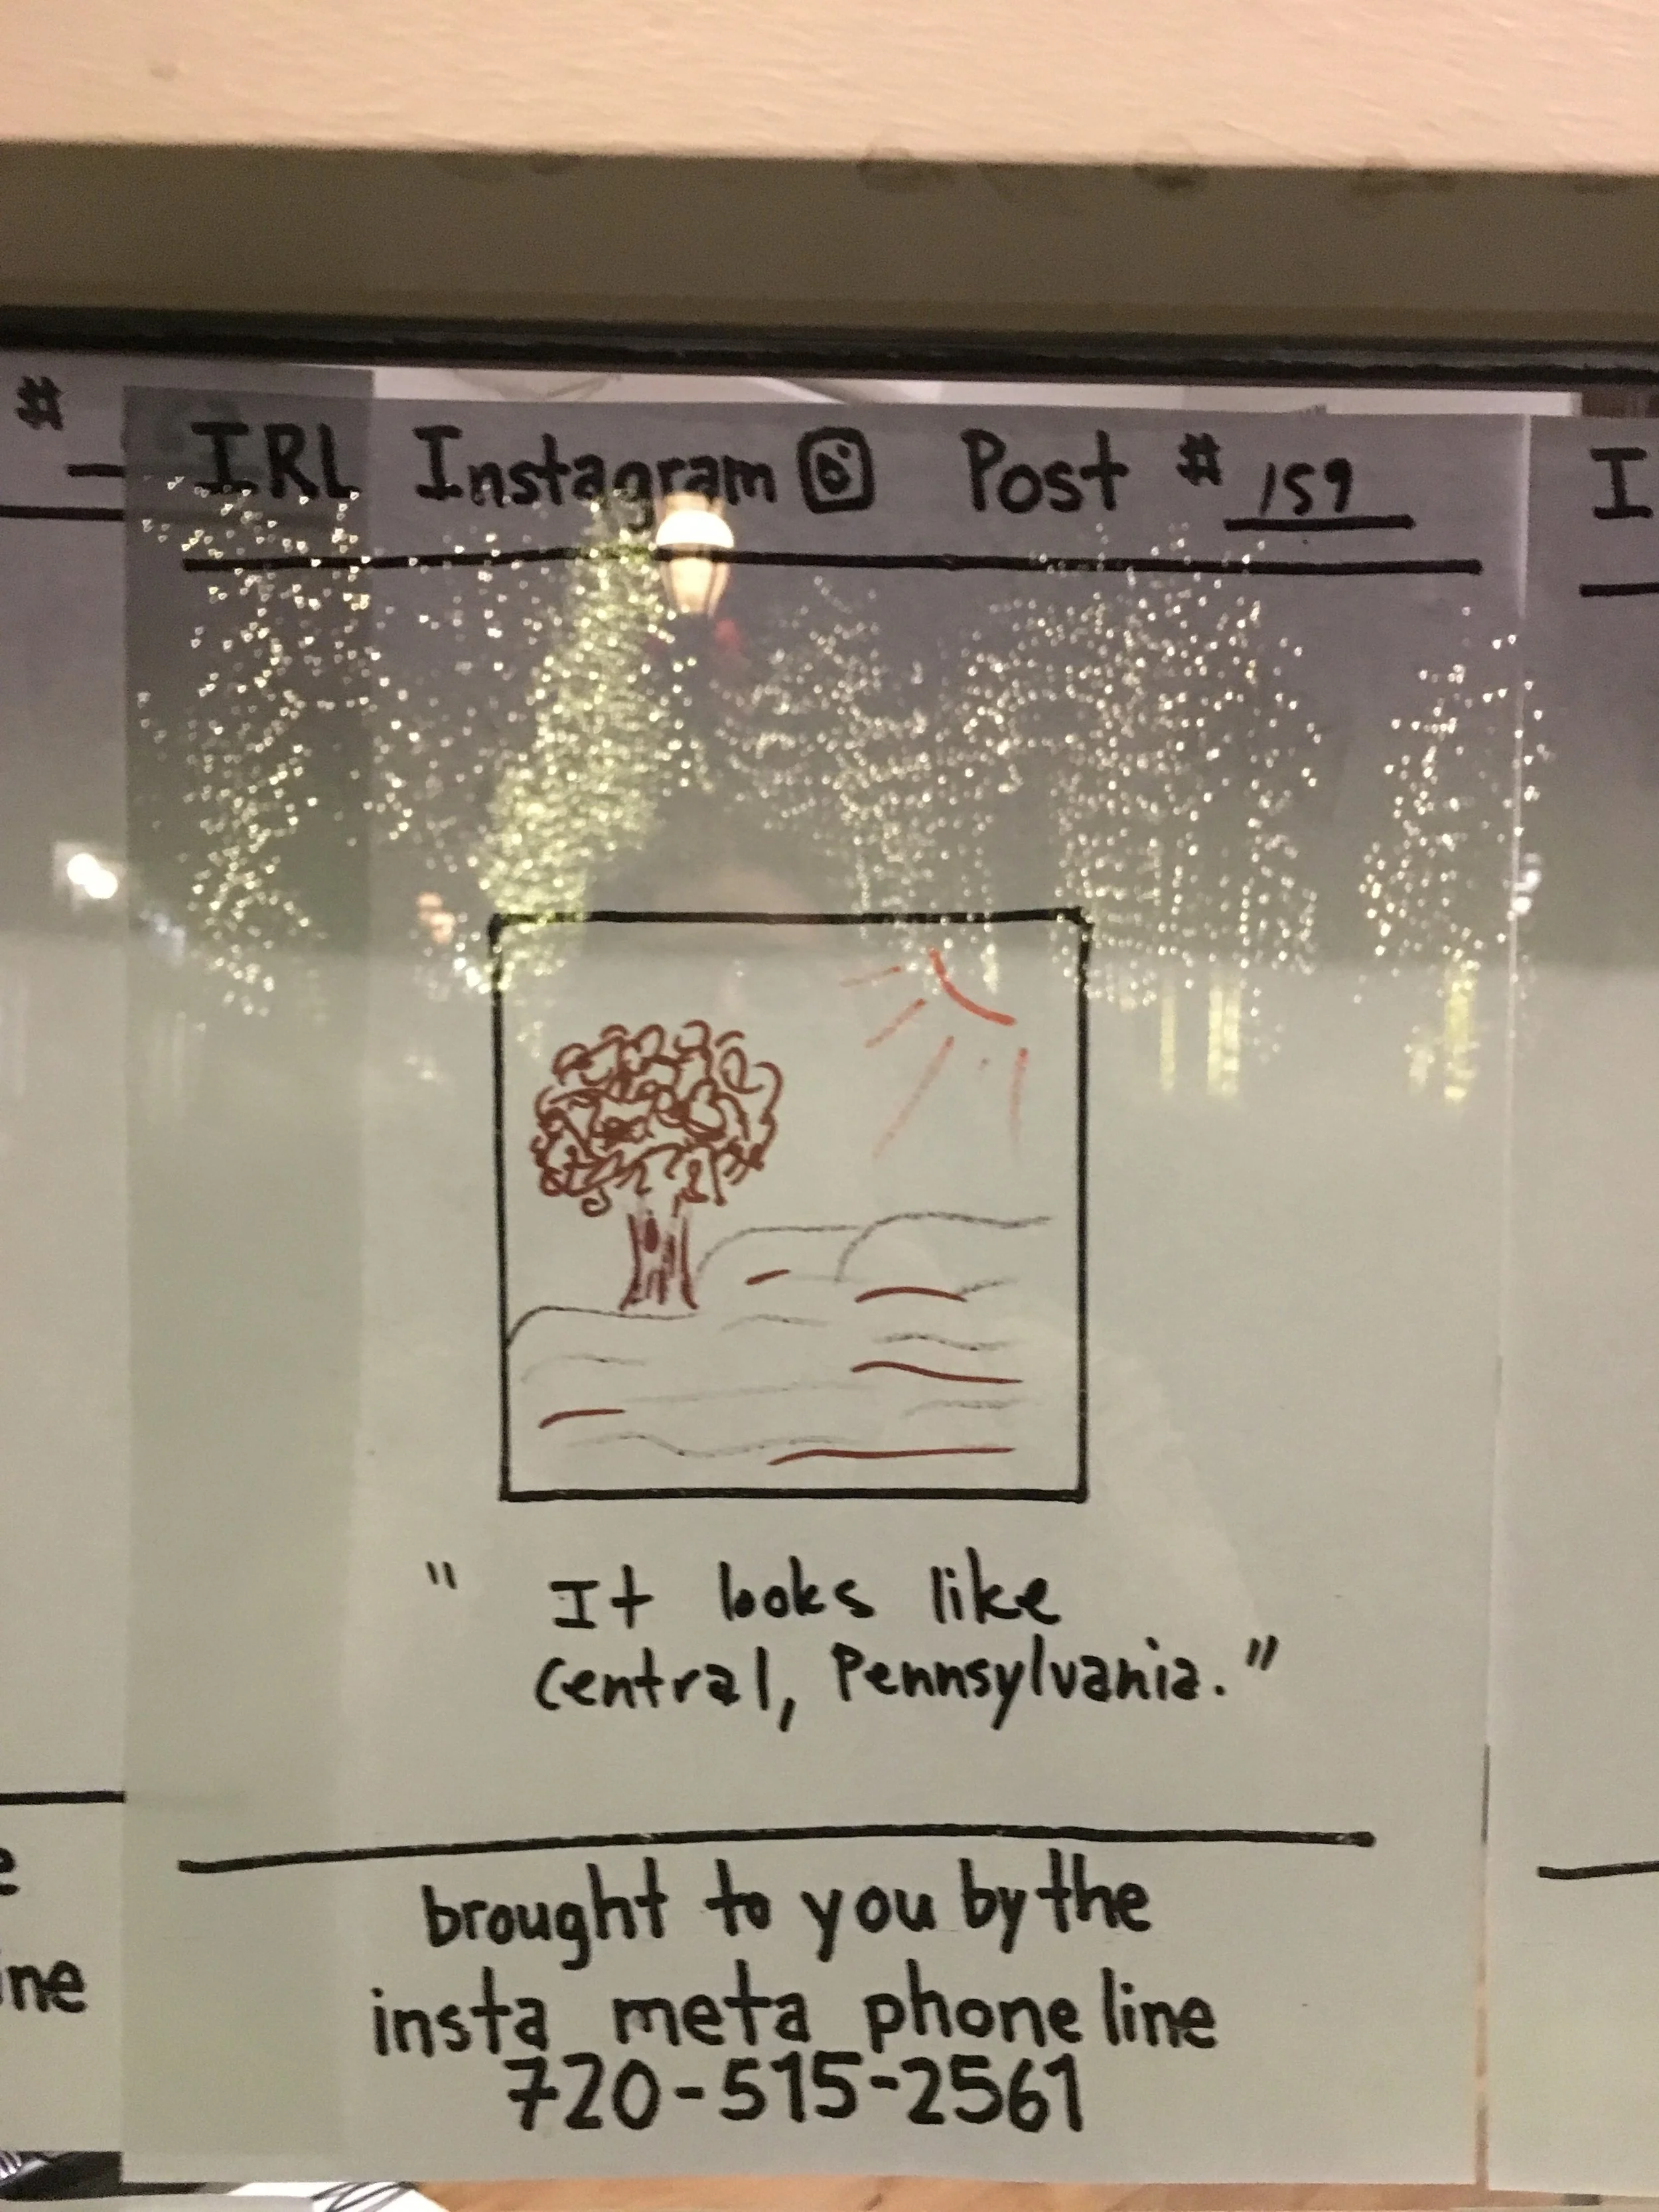 #
IRL Instagram Post # 159
I
" It looks like
Central, Pennsylvania."
brought to you by the
insta meta phone line
720-515-2561
ine